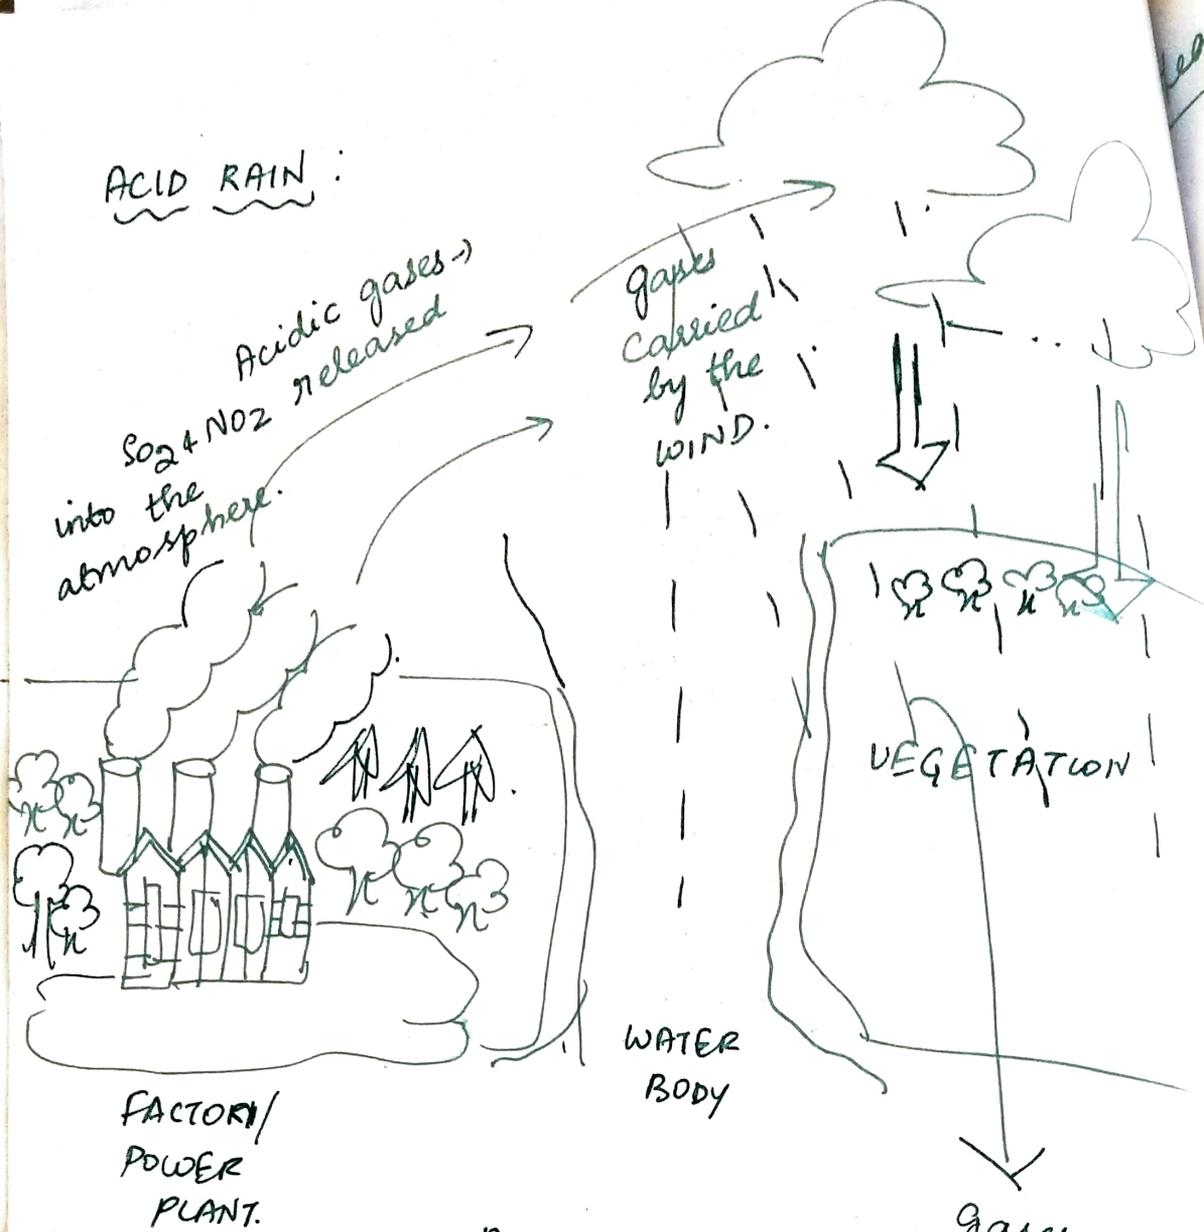 ACID RAIN :
Acidic gases →
SO2 + NO2 released
into the
atmosphere.
gases
carried
by the
WIND.
VEGETATION
WATER
BODY
FACTORY/
POWER
PLANT.